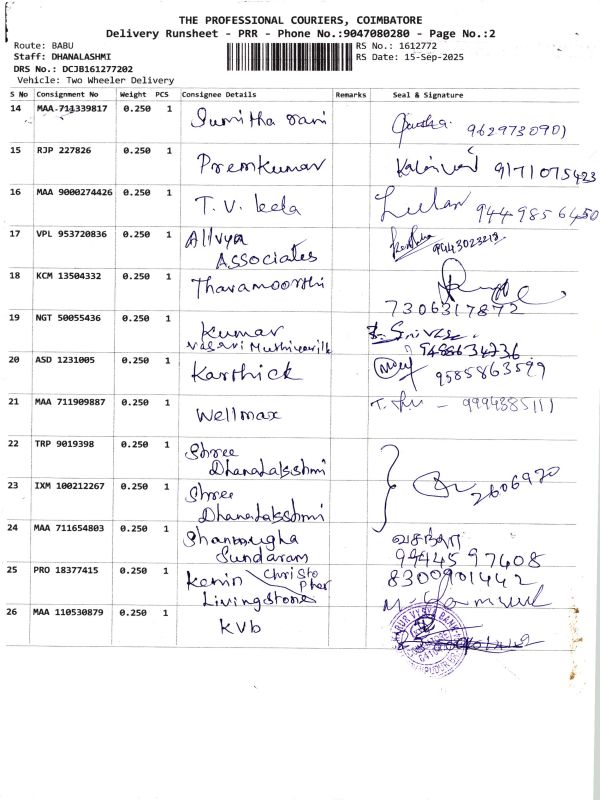 THE PROFESSIONAL COURIERS, COIMBATORE
Delivery Runsheet - PRR - Phone No.:9047080280 - Page No.:2
Route: BABU RS No.: 1612772
Staff: DHANALASHMI RS Date: 15-Sep-2025
DRS No.: DCJB161277202
Vehicle: Two Wheeler Delivery
S No Consignment No Weight PCS Consignee Details Remarks Seal & Signature
14 MAA 711339817 0.250 1 Sumitha rani 9629730901
15 RJP 227826 0.250 1 Premkumar 9171075423
16 MAA 9000274426 0.250 1 T.V. leela 9449856450
17 VPL 953720836 0.250 1 Allvya 9443023219
Associates
18 KCM 13504332 0.250 1 Tharamoorthi
7306317872
19 NGT 50055436 0.250 1 Kumar
9488634236
20 ASD 1231005 0.250 1 Karthick 9585863599
21 MAA 711909887 0.250 1 Wellmax 9994385111
22 TRP 9019398 0.250 1 Shree
Dhanalakshmi
2606920
23 IXM 100212267 0.250 1 Shree
Dhanalakshmi
24 MAA 711654803 0.250 1 Shanmugha வசந்தா
Sundaram 9944597408
25 PRO 18377415 0.250 1 Kevin Christo pher 8300901442
Livingstone
26 MAA 110530879 0.250 1 KVb